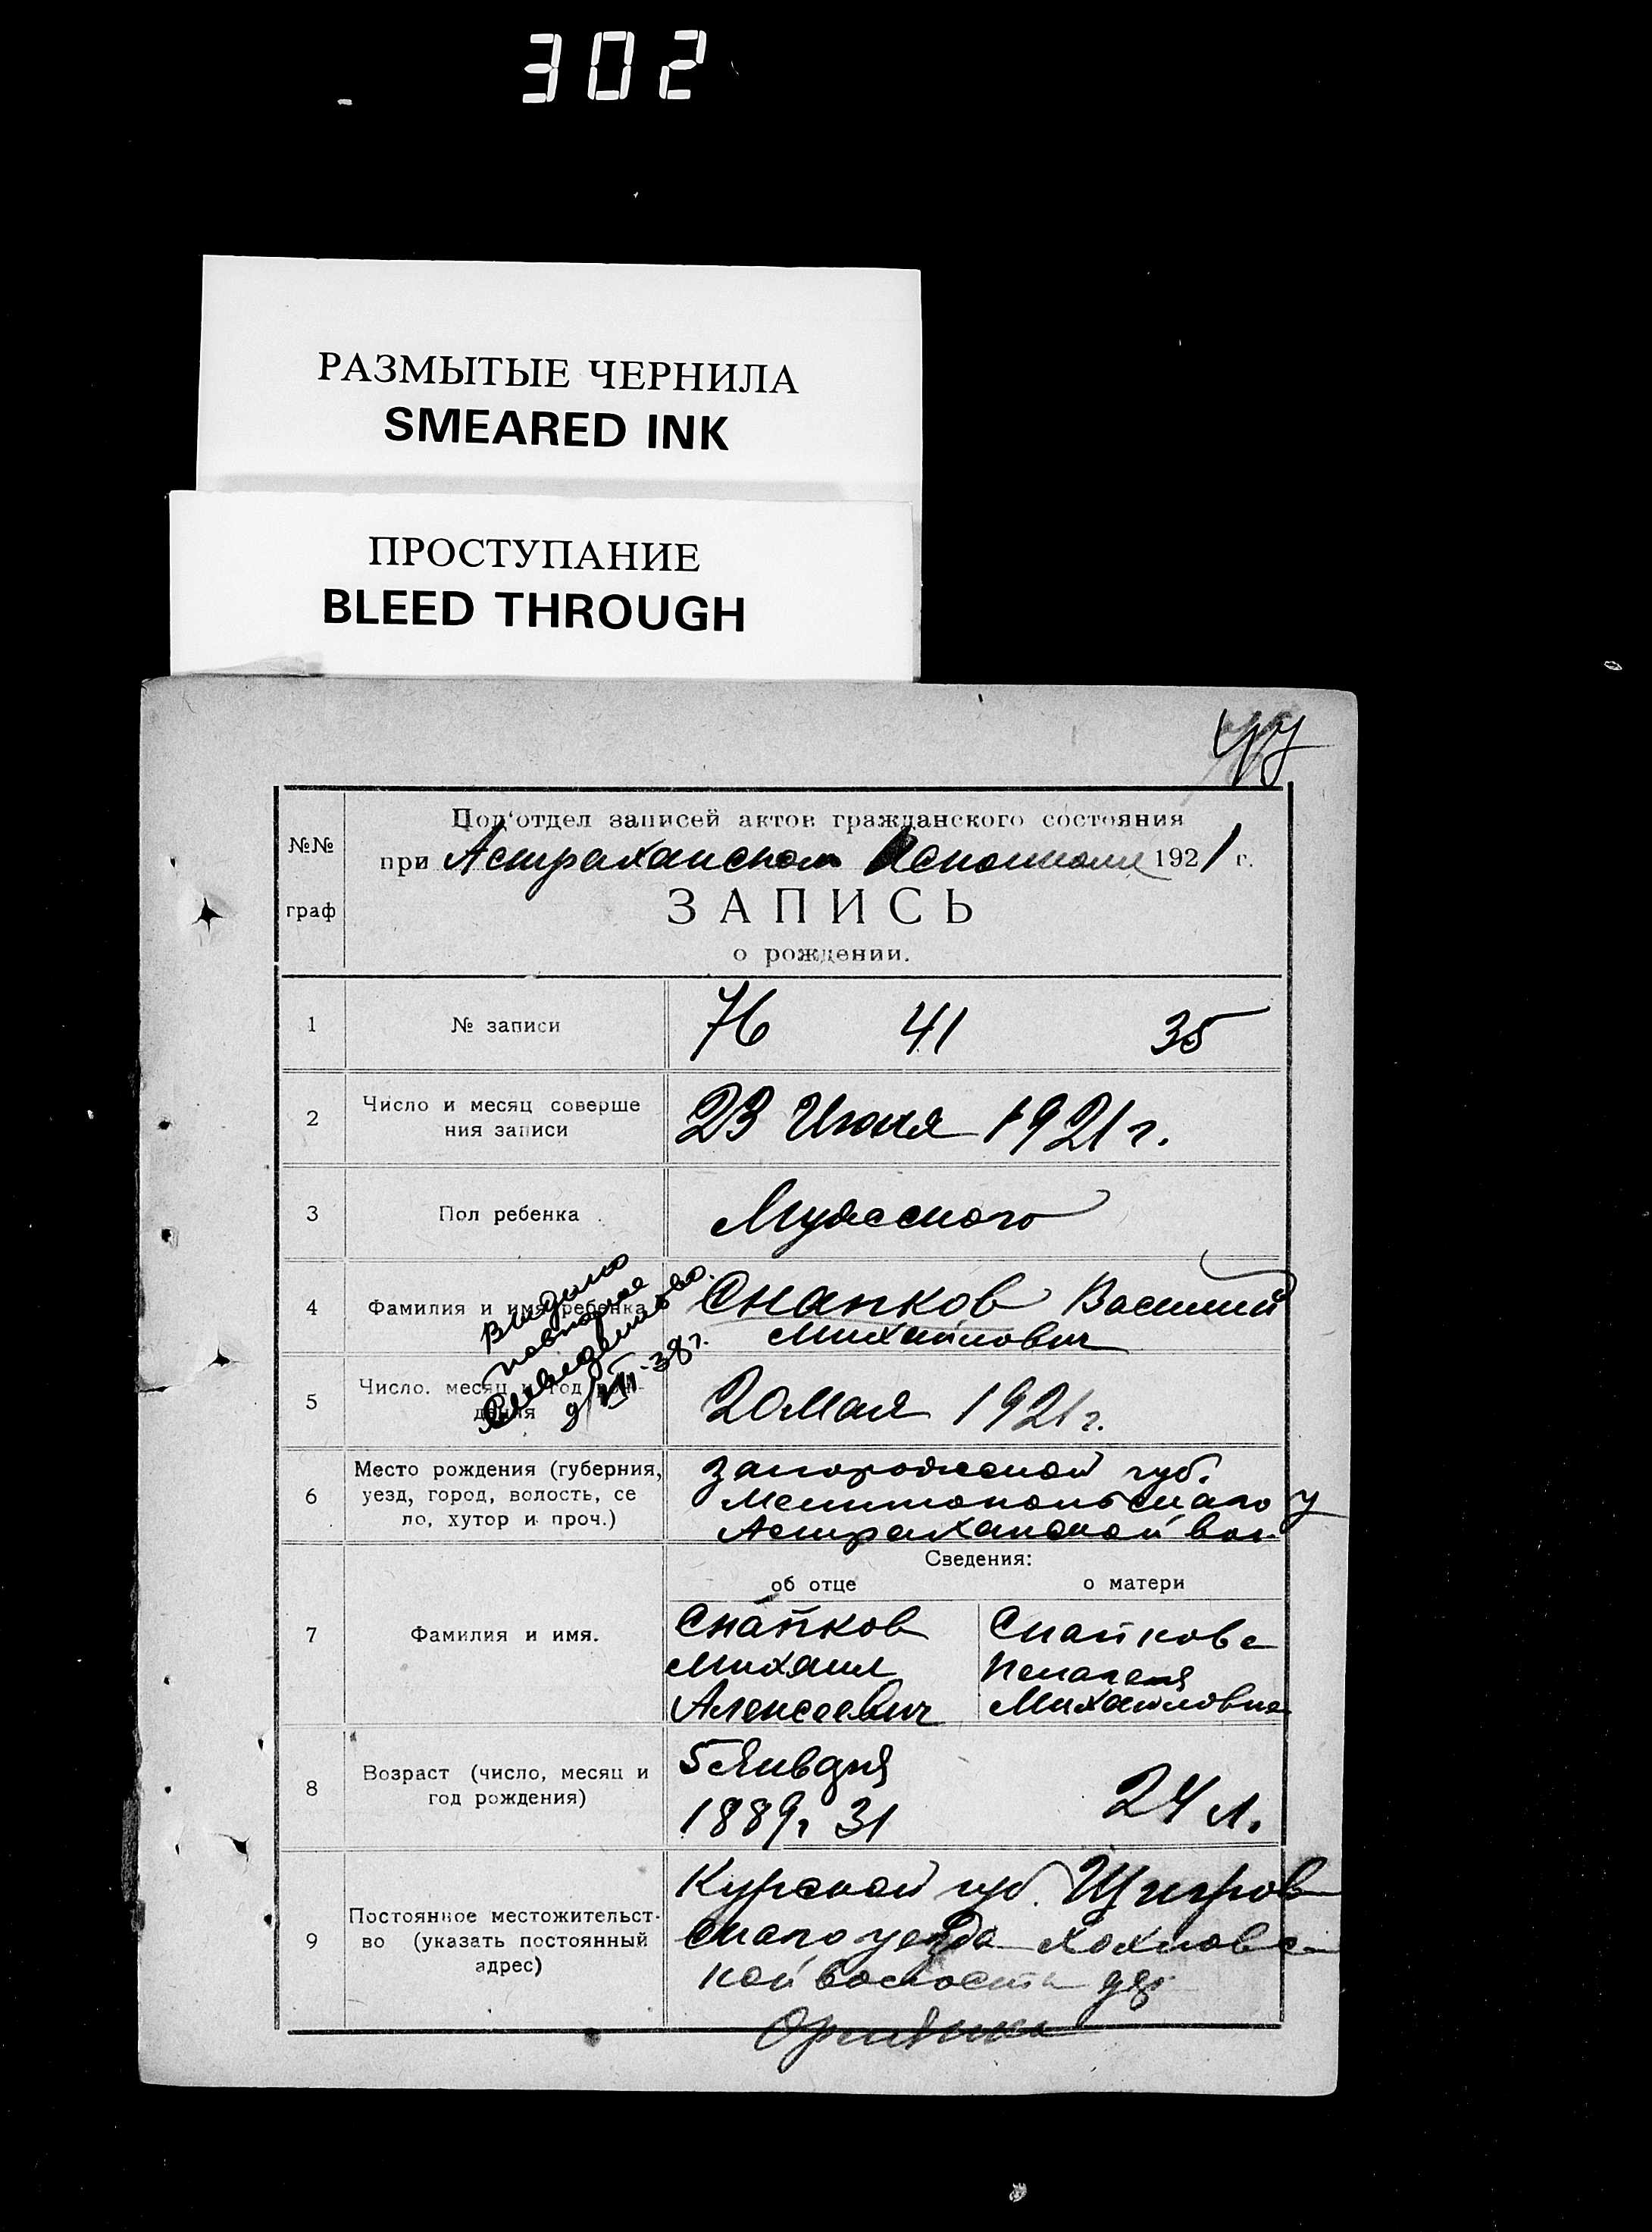 302
РАЗМЫТЫЕ ЧЕРНИЛА
SMEARED INK
ПРОСТУПАНИЕ
BLEED THROUGH
№№
граф
Под'отдел записей актов гражданского состояния
при Астраханском Исполкоме 1921 г.
ЗАПИСЬ
о рождении.
1
№ записи
76 41 35
2
Число и месяц соверше
ния записи
23 Июня 1921 г.
3
Пол ребенка
Мужского
4
Фамилия и имя ребенка
Снапков Василий
Михайлович
Выдано
повторное
Свидетельство.
9/VII-38 г.
5
Число. месяц и год рож-
дения
20 Мая 1921 г.
6
Место рождения (губерния,
уезд, город, волость, се
ло, хутор и проч.)
Запорожской губ.
Мелитопольскаго у
Астраханской вол.
Сведения:
об отце
о матери
7
Фамилия и имя.
Снапков
Михаил
Алексеевич
Снапкова
Пелагея
Михайловна
8
Возраст (число, месяц и
год рождения)
5 Января
1889 г 31
24 л.
9
Постоянное местожительст-
во (указать постоянный
адрес)
Курской губ. Щигров
скаго уезда Хохловс
кой волости дер